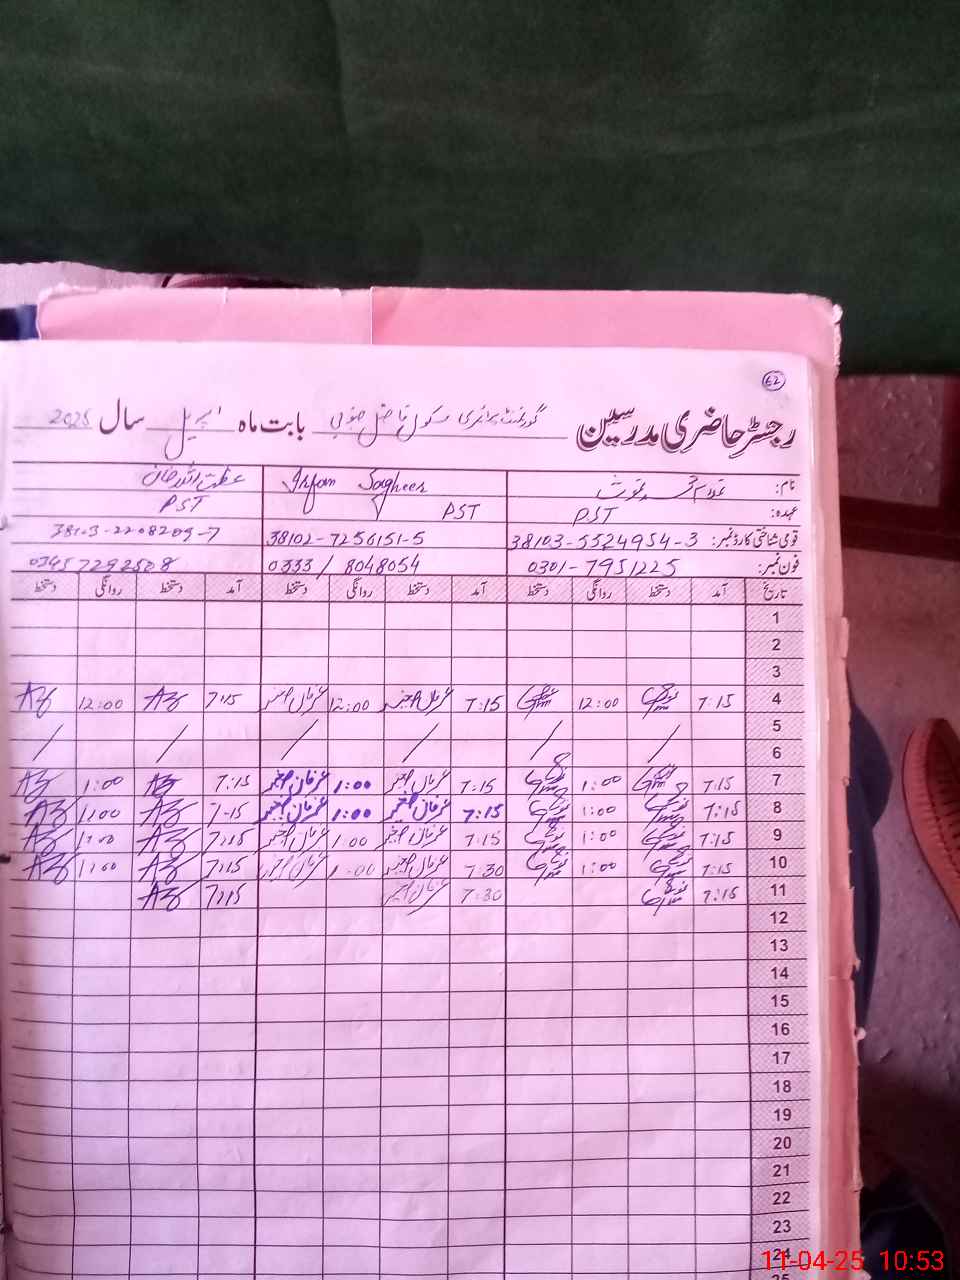 62
رجسٹر حاضری مدرسین گورنمنٹ پرائمری سکول فاضل جنوبی بابت ماہ اپریل سال 2025
نام: Irfan Sagheer عظمت اللہ خان
عہدہ: PST PST PST
قومی شناختی کارڈ نمبر: 38103-5524954-3 38102-7256151-5 38103-2208209-7
فون نمبر: 0301-7951225 0333/8048054 03457292508
تاریخ آمد دستخط روانگی دستخط آمد دستخط روانگی دستخط آمد دستخط روانگی دستخط
1
2
3
4 7:15 12:00 7:15 عرفان صغیر 12:00 عرفان صغیر 7:15 12:00
5
6 / / / / / /
7 7:15 1:00 7:15 عرفان صغیر 1:00 عرفان صغیر 7:15 1:00
8 7:15 1:00 7:15 عرفان صغیر 1:00 عرفان صغیر 7:15 1:00
9 7:15 1:00 7:15 عرفان صغیر 1:00 عرفان صغیر 7:15 1:00
10 7:15 1:00 7:30 عرفان صغیر 1:00 عرفان صغیر 7:15 1:00
11 7:15 7:30 عرفان صغیر 7:15
12
13
14
15
16
17
18
19
20
21
22
23
24
25
11-04-25 10:53